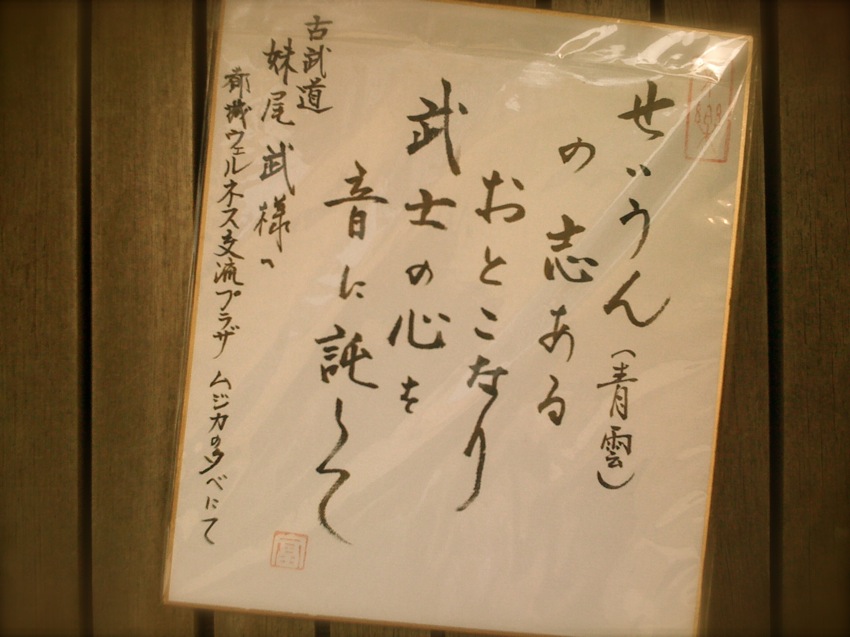 せいうん(青雲)
の志ある
おとこなり
武士の心を
音に託して
古武道
妹尾武様へ
都城ウェルネス交流プラザ ムジカの夕べにて